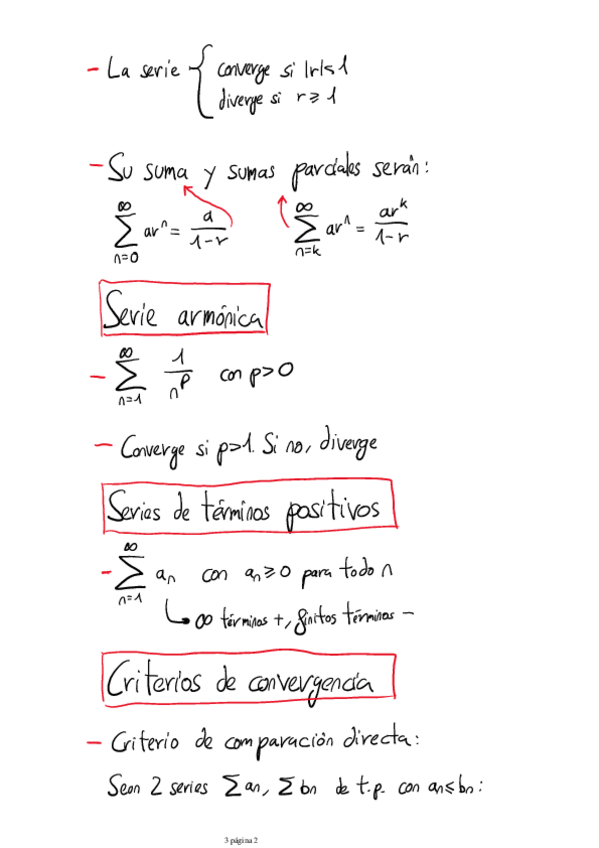 - La serie { converge si |r|≤1
diverge si r≥1
- Su suma y sumas parciales serán:
∞∑n=0 arⁿ = a/1-r ∞∑n=k arⁿ = arᵏ/1-r
Serie armónica
- ∞∑n=1 1/nᵖ con p>0
- Converge si p>1. Si no, diverge
Series de términos positivos
- ∞∑n=1 an con an≥0 para todo n
↳ ∞ términos +, finitos términos -
Criterios de convergencia
- Criterio de comparación directa:
Sean 2 series ∑an, ∑bn de t.p. con an≤bn:
3 página 2